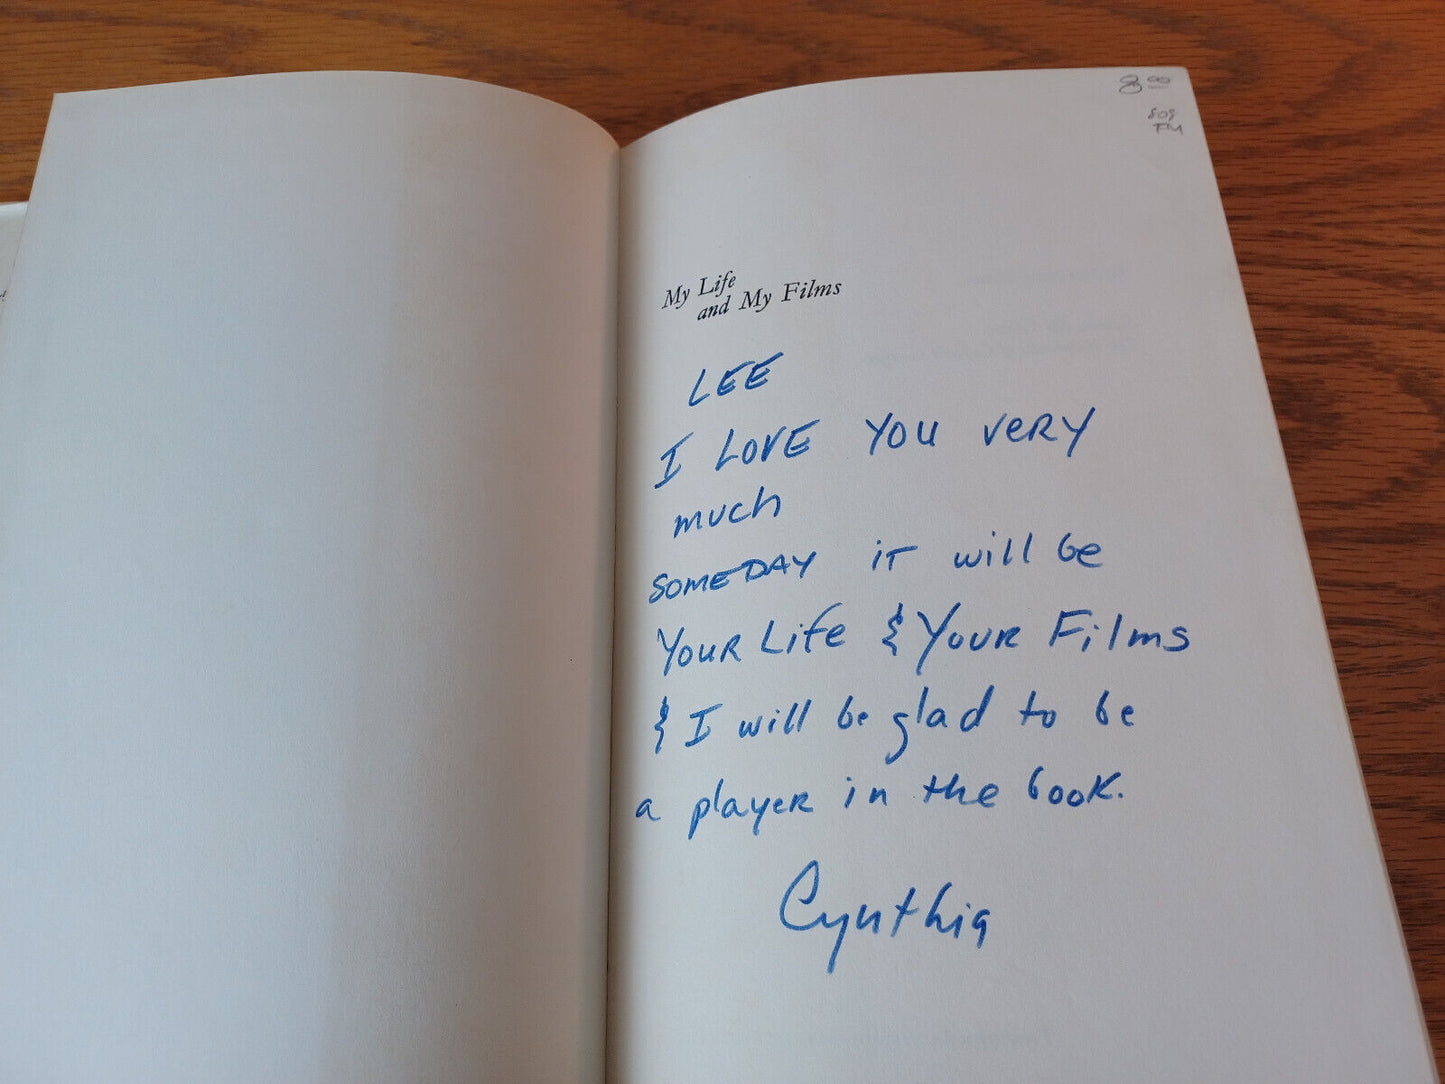 8.00
809
FM
My Life
and My Films
LEE
I LOVE YOU VERY
much
SOMEDAY IT will be
YOUR LIfe & YOUR Films
& I will be glad to be
a player in the book.
Cynthia